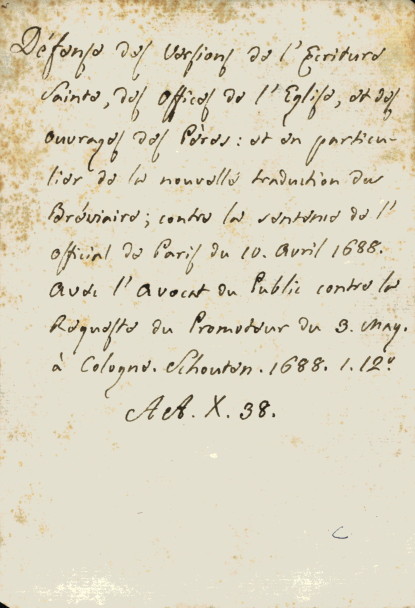 Défense des versions de l'Ecriture
Sainte, des offices de l'Eglise, et des
ouvrages des Péres: et en particu-
lier de la nouvelle traduction du
Bréviaire; contre la sentence de l'
official de Paris du 10. Avril 1688.
Avec l'Avocat du Public contre la
Requeste du Promoteur du 3. May.
à Cologne. Schouten. 1688. 1. 12º
AA. X. 38.